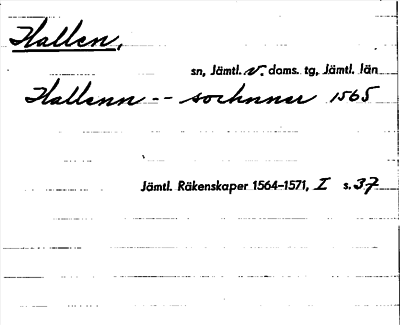 Hallen,
sn, Jämtl. v. doms. tg, Jämtl. län
Hallenn -- sochnner 1565
Jämtl. Räkenskaper 1564-1571, I s. 37